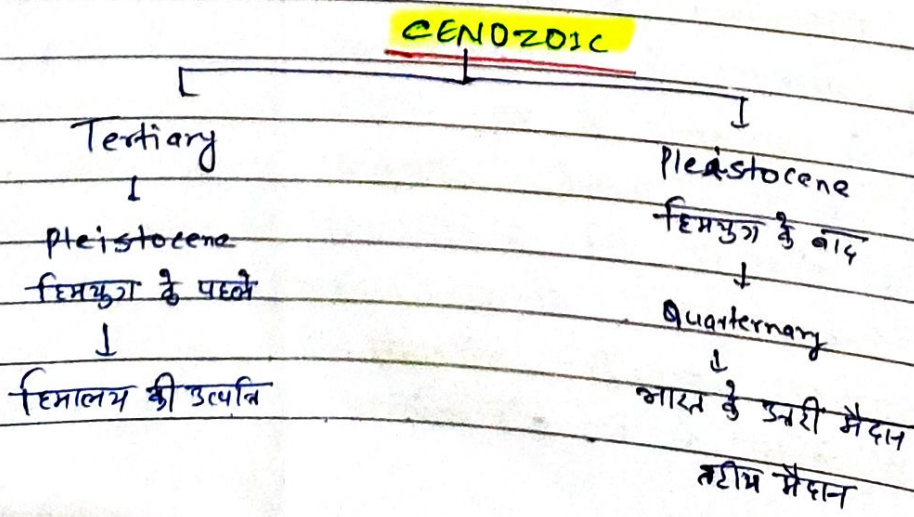 CENOZOIC
Tertiary
Pleistocene
हिमयुग के पहले
हिमालय की उत्पत्ति
Pleistocene
हिमयुग के बाद
Quarternary
भारत के उत्तरी मैदान
तटीय मैदान